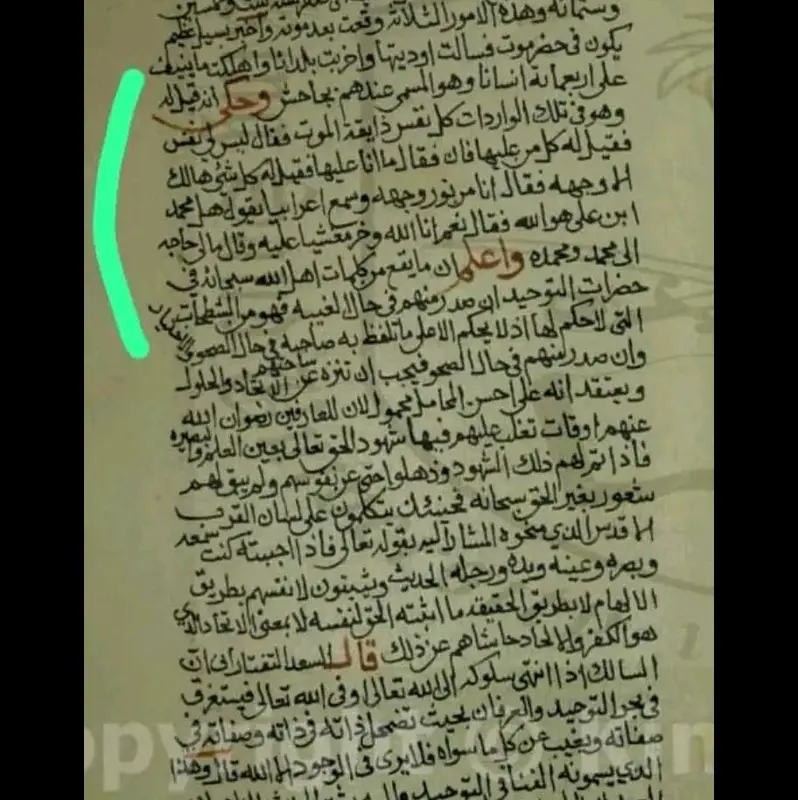 وستمائه وهذه الامور الثلاثة وقعت بعد موته واخبر بسيل عظيم
يكون في حضرموت فسالت اوديتها واخربت بلدانا واهلكت ما ينيف
على اربعمائة انسانا وهو المسمى عندهم بجاحش وحكي انه قيل له
وهو في تلك الواردات كل نفس ذايقة الموت فقال ليس لي نفس
فقيل له كل من عليها فان فقال ما انا عليها فقيل له كل شئ هالك
الا وجهه فقال انا من نور وجهه وسمع اعرابيا يقول هل محمد
ابن علي هو الله فقال نعم انا الله وخر مغشيا عليه وقال مالي حاجه
الى محمد ومحمده واعلم ان ما يقع من كلمات اهل الله سبحانه في
حضرات التوحيد ان صدر منهم في حال الغيبه فهو من الشطحيات
التي لا حكم لها اذ لا يحكم الا على ما تلفظ به صاحبه في حال الصحو
وان صدر منهم في حال الصحو فيجب ان تنزه ساحتهم عن الاتحاد والحلول
ويعتقد انه على احسن المحامل محمول لان للعارفين رضوان الله
عنهم اوقات تغلب عليهم فيها شهود الحق تعالى بعين العلم والبصيره
فاذا تم لهم ذلك الشهود وذهلوا حتى عن نفوسهم ولم يبق لهم
شعور بغير الحق سبحانه فحينئذ يتكلمون على لسان القرب
الاقدس الذي منحوه المشار اليه بقوله تعالى فاذا احببته كنت سمعه
وبصره وعينه ويده ورجله الحديث ويثبتون لانفسهم بطريق
الالهام لا بطريق الحقيقه ما اثبته الحق لنفسه لا بمعنى الاتحاد الذي
هو الكفر والالحاد حاشاهم عن ذلك قال السعد التفتازاني ان
السالك اذا انتهى سلوكه الى الله تعالى او في الله تعالى فيستغرق
في بحر التوحيد والعرفان بحيث تضمحل ذاته في ذاته وصفاته في
صفاته ويغيب عن كل ما سواه فلا يرى في الوجود الا الله قال وهذا
الذي يسمونه الفنا في التوحيد